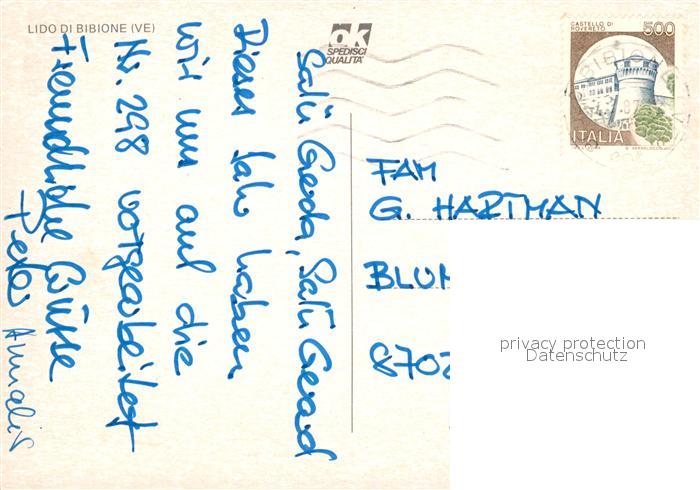 LIDO DI BIBIONE (VE)
ok
SPEDISCI
QUALITA'
CASTELLO DI
ROVERETO
500
ITALIA
Salü Gerda, Salü Gerard
Dieses Jahr haben
wir uns auf die
Nr. 298 vorgearbeitet
Freundliche Grüsse
Peter Annalis
FAM
G. HARTMAN
BLUM
8702
privacy protection
Datenschutz